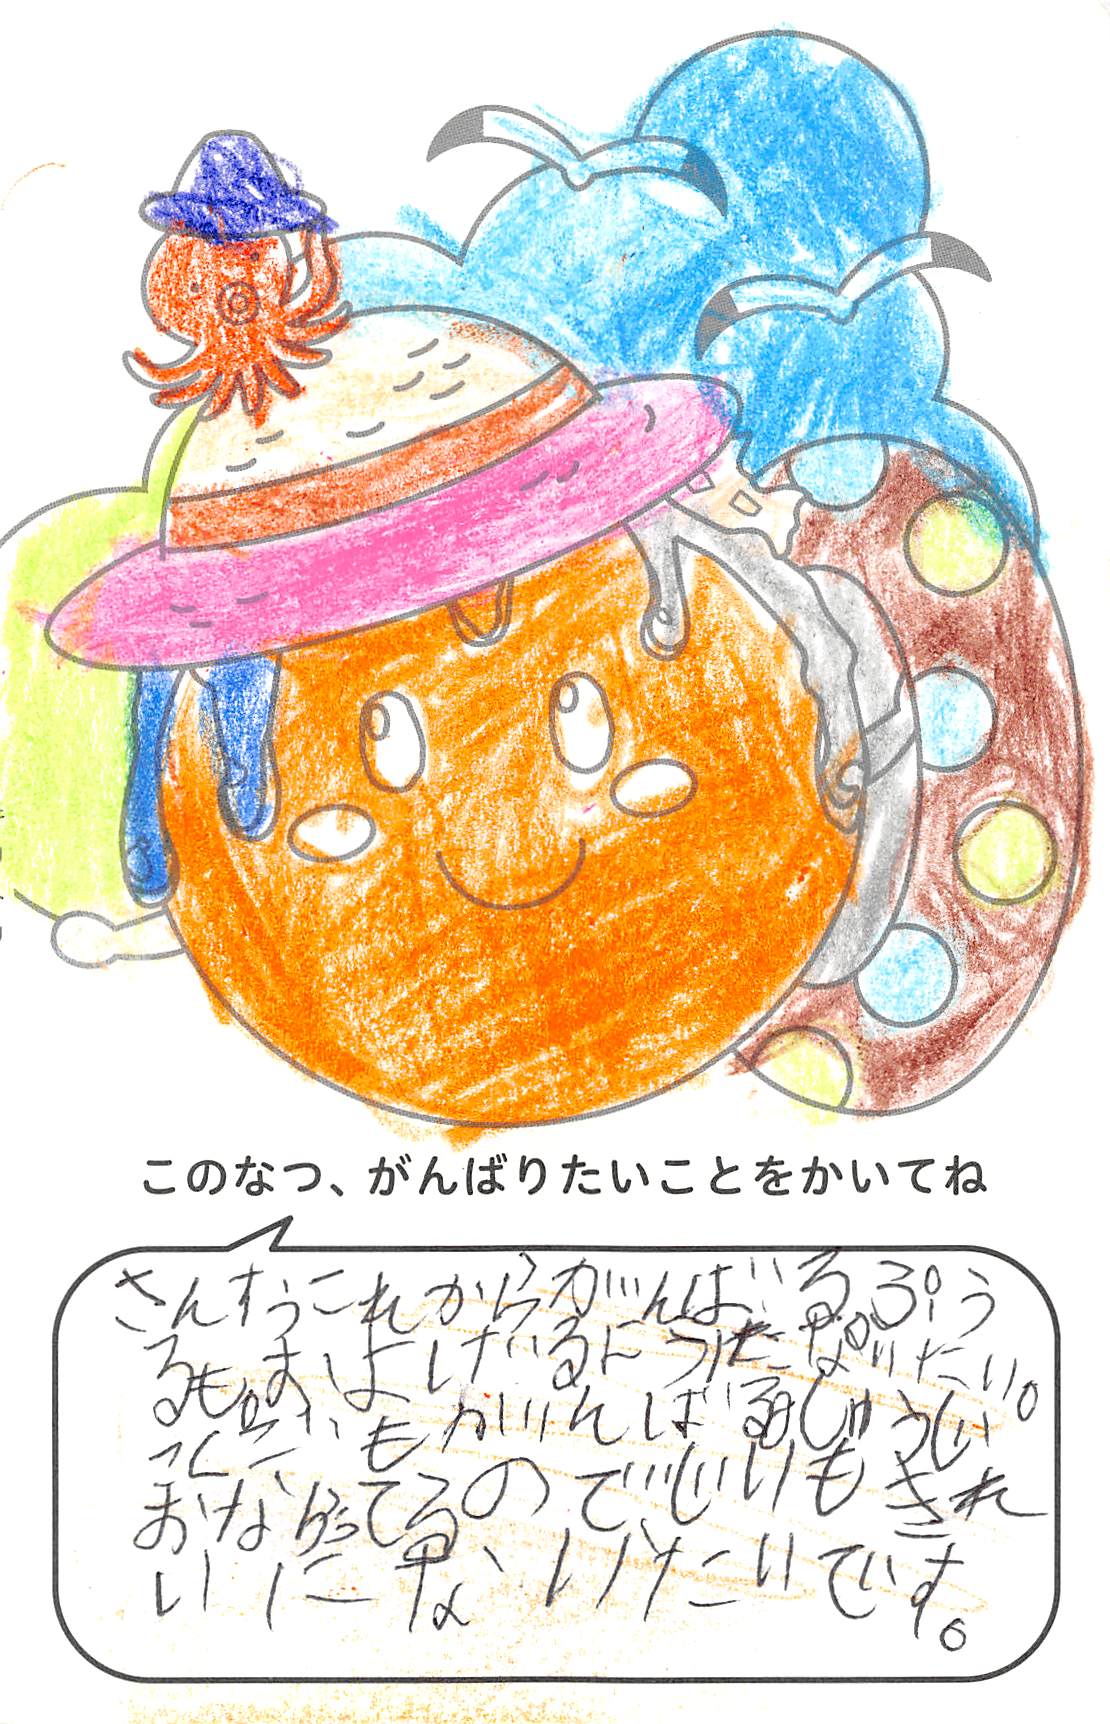 このなつ、がんばりたいことをかいてね
さんすうこれからがんばる ぷう
るもおよげるにうだなりたい。
つくえもがんばるしゅうじ
おならってるのでじもきれ
いになりたいです。